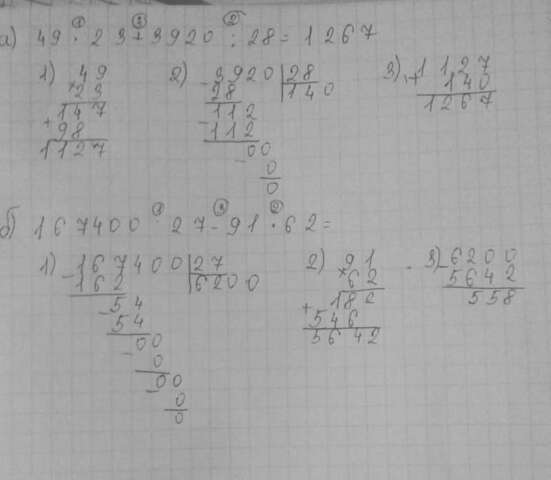 ① ③ ②
а) 49 · 23 + 3920 : 28 = 1267
1) 49
× 23
147
+ 98
1127
2) - 3920 | 28
28 | 140
112
- 112
00
- 0
0
3) + 1127
140
1267
① ③ ②
б) 167400 : 27 - 91 · 62 =
1) - 167400 | 27
162 | 6200
54
- 54
00
- 0
00
- 0
0
2) 91
× 62
182
+ 546
5642
3) - 6200
5642
558